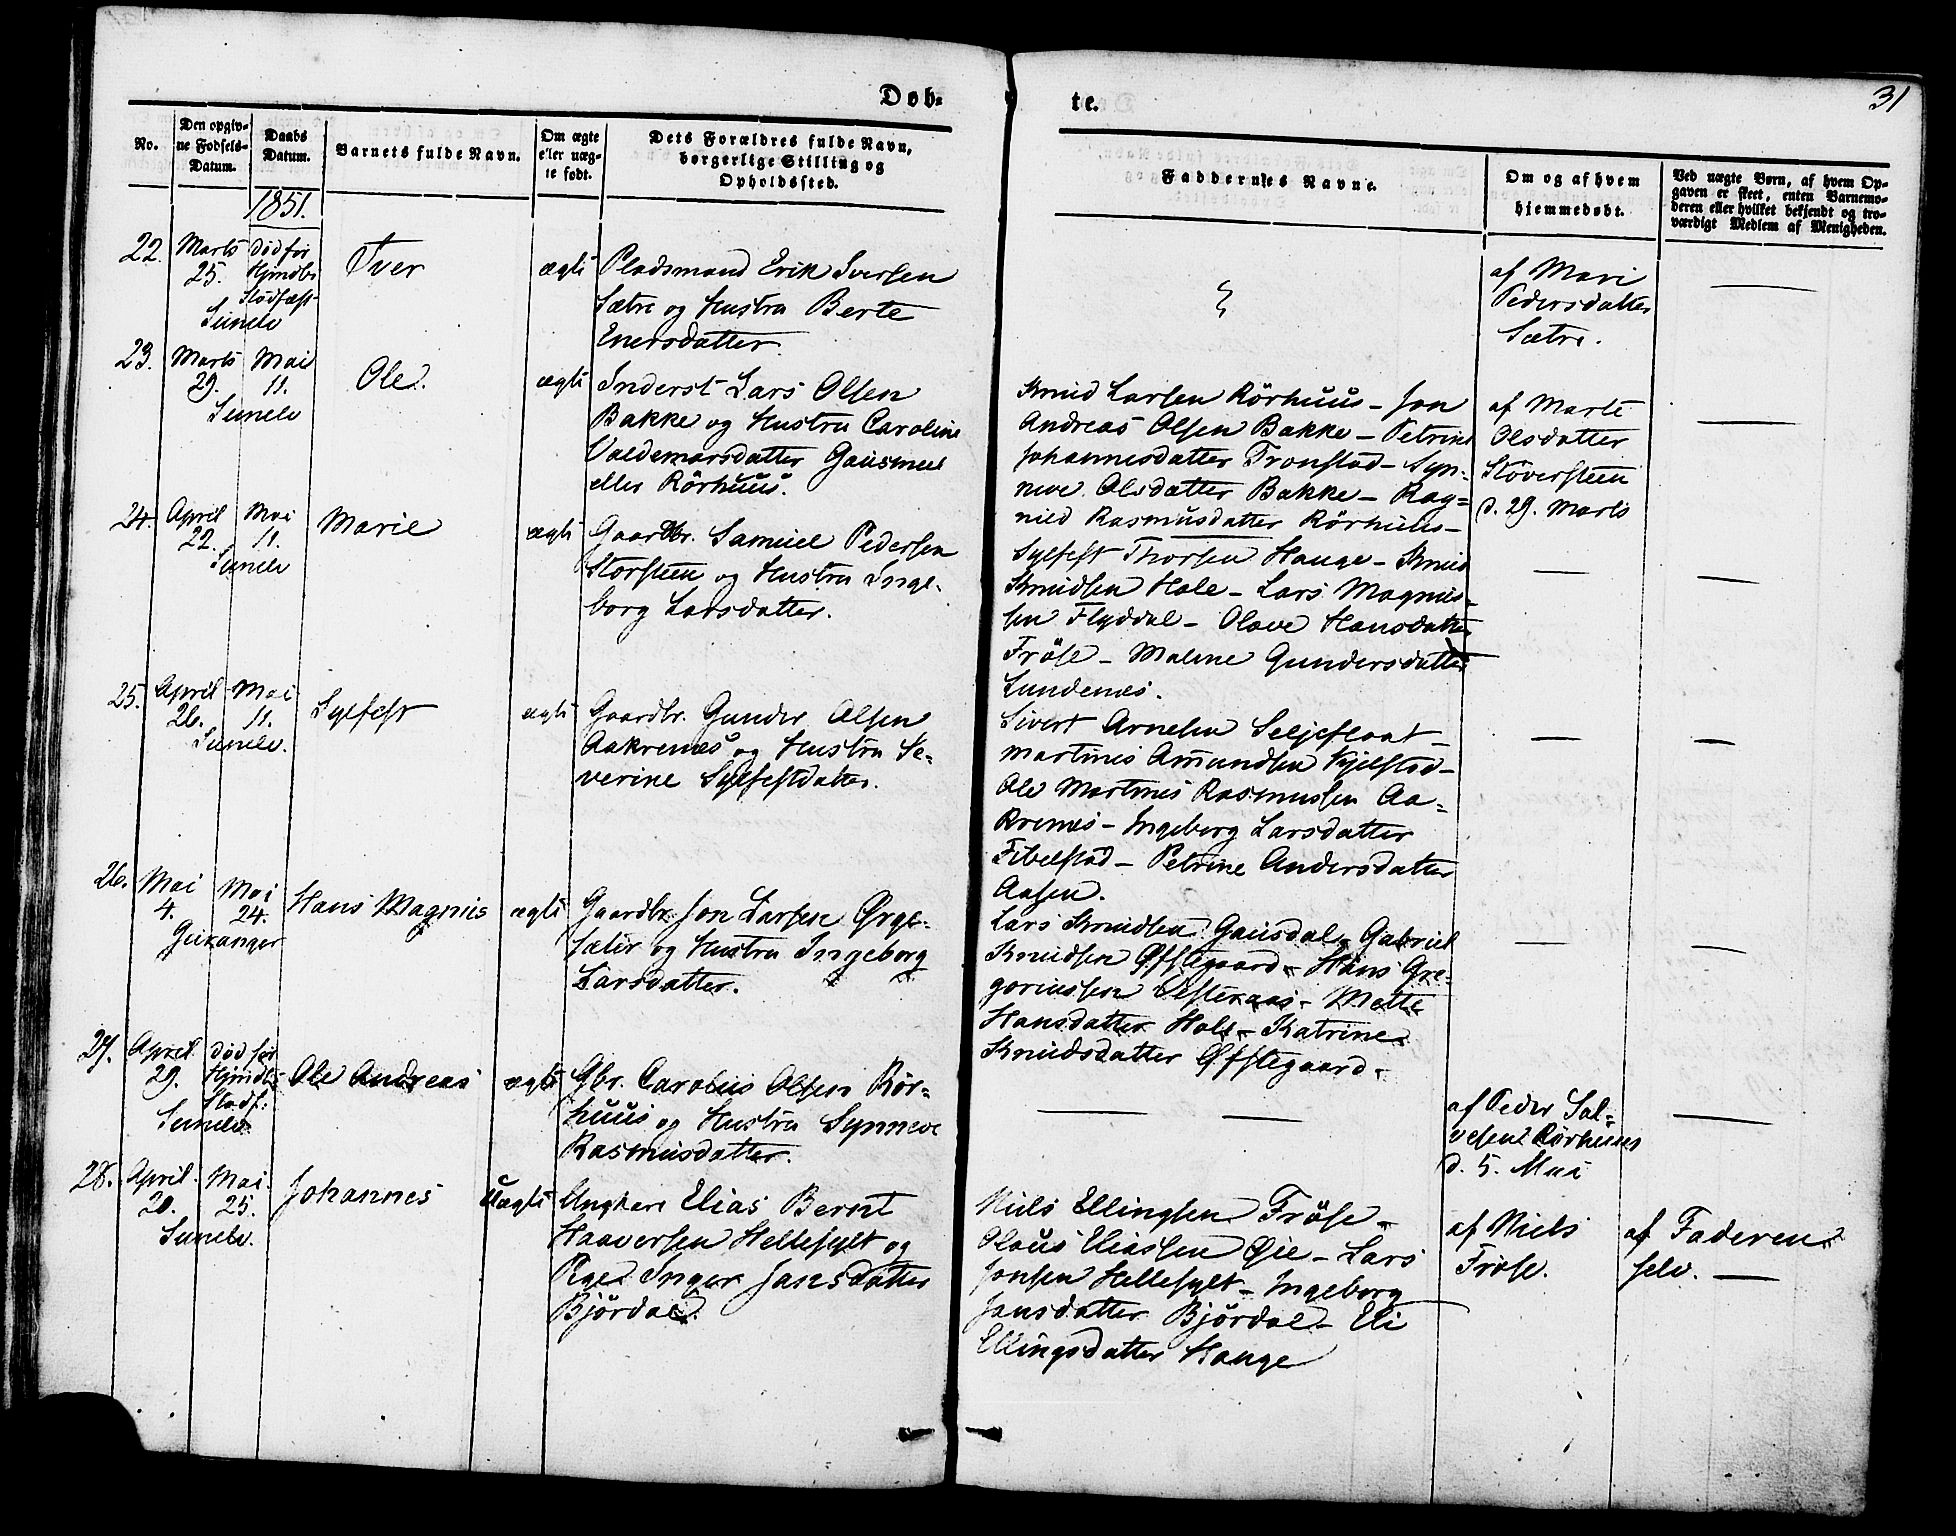 Døb-
te.
31
No.
Den opgiv-
ne Fødsels-
Datum.
Daabs
Datum.
Barnets fulde Navn.
Om ægte
eller uæg-
te født.
Dets Forældres fulde Navn,
borgerlige Stilling og
Opholdssted.
Faddernes Navne.
Om og af hvem
hjemmedøbt.
Ved uægte Børn, af hvem Op-
gaven er skeet, enten Barnemo-
deren eller hvilket bekjendt og tro-
værdigt Medlem af Menigheden.
1851.
22.
Marts
25.
Død før
Sunelv
Iver
ægte
Pladsmand Erik Iversen
Sætre og Hustru Berte
Enersdatter.
af Mari
Pedersdatter
Sætre.
23.
Marts
29.
Mai
11.
Sunelv
Ole.
ægte
Inderst Lars Olsen
Bakke og Hustru Caroline
Valdemarsdatter Gausmeel
eller Rörhuus.
Knud Larsen Rörhuus - Jon
Andreas Olsen Bakke - Petrine
Johannesdatter Tronstad - Syn-
neve Olsdatter Bakke - Rag-
nild Rasmusdatter Rörhuus -
af Marte
Olsdatter
Stöversteen
d. 29. Marts
24.
April
22.
Mai
11.
Sunelv
Marie
ægte
Gaardbr. Samuel Pedersen
Storsteen og Hustru Inge-
borg Larsdatter.
Sylfest Thorsen Hauge - Knud
Knudsen Hole - Lars Magnus-
sen Flyddal - Olave Hansdatter
Fröse - Malene Gundersdatter
Lundenes.
25.
April
26.
Mai
11.
Sunelv.
Sylfest
ægte
Gaardbr. Gunder Olsen
Aakrenes og Hustru Se-
verine Sylfestdatter.
Sivert Arnesen Seljefloat -
Martinus Amundsen Kjelstad -
Ole Martinus Rasmussen Aa-
krenes - Ingeborg Larsdatter
Fibelstad - Petrine Andersdatter
Aasen.
26.
Mai
4.
Mai
24.
Geiranger
Hans Magnus
ægte
Gaardbr. Jon Larsen Ørge-
sæter og Hustru Ingeborg
Larsdatter.
Lars Knudsen Gausdal - Gabriel
Knudsen Øfstegaard - Hans Gre-
goriussen Vesteraas - Mette
Hansdatter Hole - Katrine
Knudsdatter Øfstegaard -
27.
April
29.
Død før
Hjmdb:
Stadf:
Sunelv
Ole Andreas
ægte
Gbr. Carolus Olsen Rör-
huus og Hustru Synneve
Rasmusdatter.
af Peder Sal-
vesen Rörhuus
d. 5. Mai
28.
April
20.
Mai
25.
Sunelv.
Johannes
Uægte
Ungkarl Elias Bernt
Haaversen Hellesylt og
Pige Inger Jansdatter
Björdal.
Niels Ellingsen Fröse -
Olaus Eliassen Øie - Lars
Jonsen Hellesylt - Ingeborg
Jansdatter Björdal - Eli
Ellingsdatter Hauge
af Niels
Fröse.
af Faderen
selv.